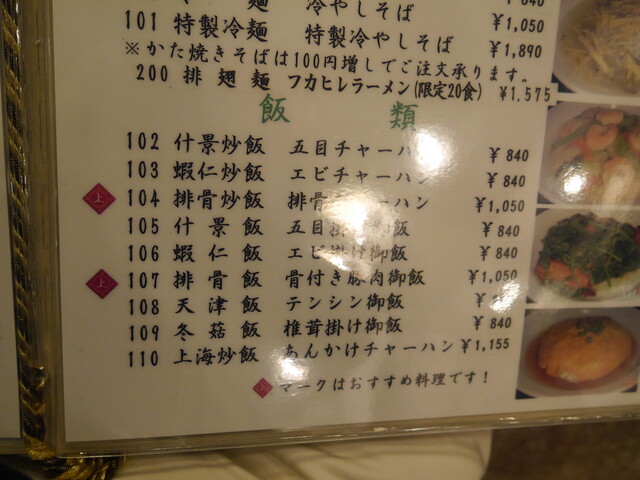 麺 冷やしそば ¥840
101 特製冷麺 特製冷やしそば ¥1,050
¥1,890
※かた焼きそばは100円増しでご注文承ります。
200 排翅麺 フカヒレラーメン(限定20食) ¥1,575
飯類
102 什景炒飯 五目チャーハン ¥840
103 蝦仁炒飯 エビチャーハン ¥840
上 104 排骨炒飯 排骨チャーハン ¥1,050
105 什景飯 五目掛け御飯 ¥840
106 蝦仁飯 エビ掛け御飯 ¥840
上 107 排骨飯 骨付き豚肉御飯 ¥1,050
108 天津飯 テンシン御飯 ¥
109 冬菇飯 椎茸掛け御飯 ¥840
110 上海炒飯 あんかけチャーハン ¥1,155
マークはおすすめ料理です!